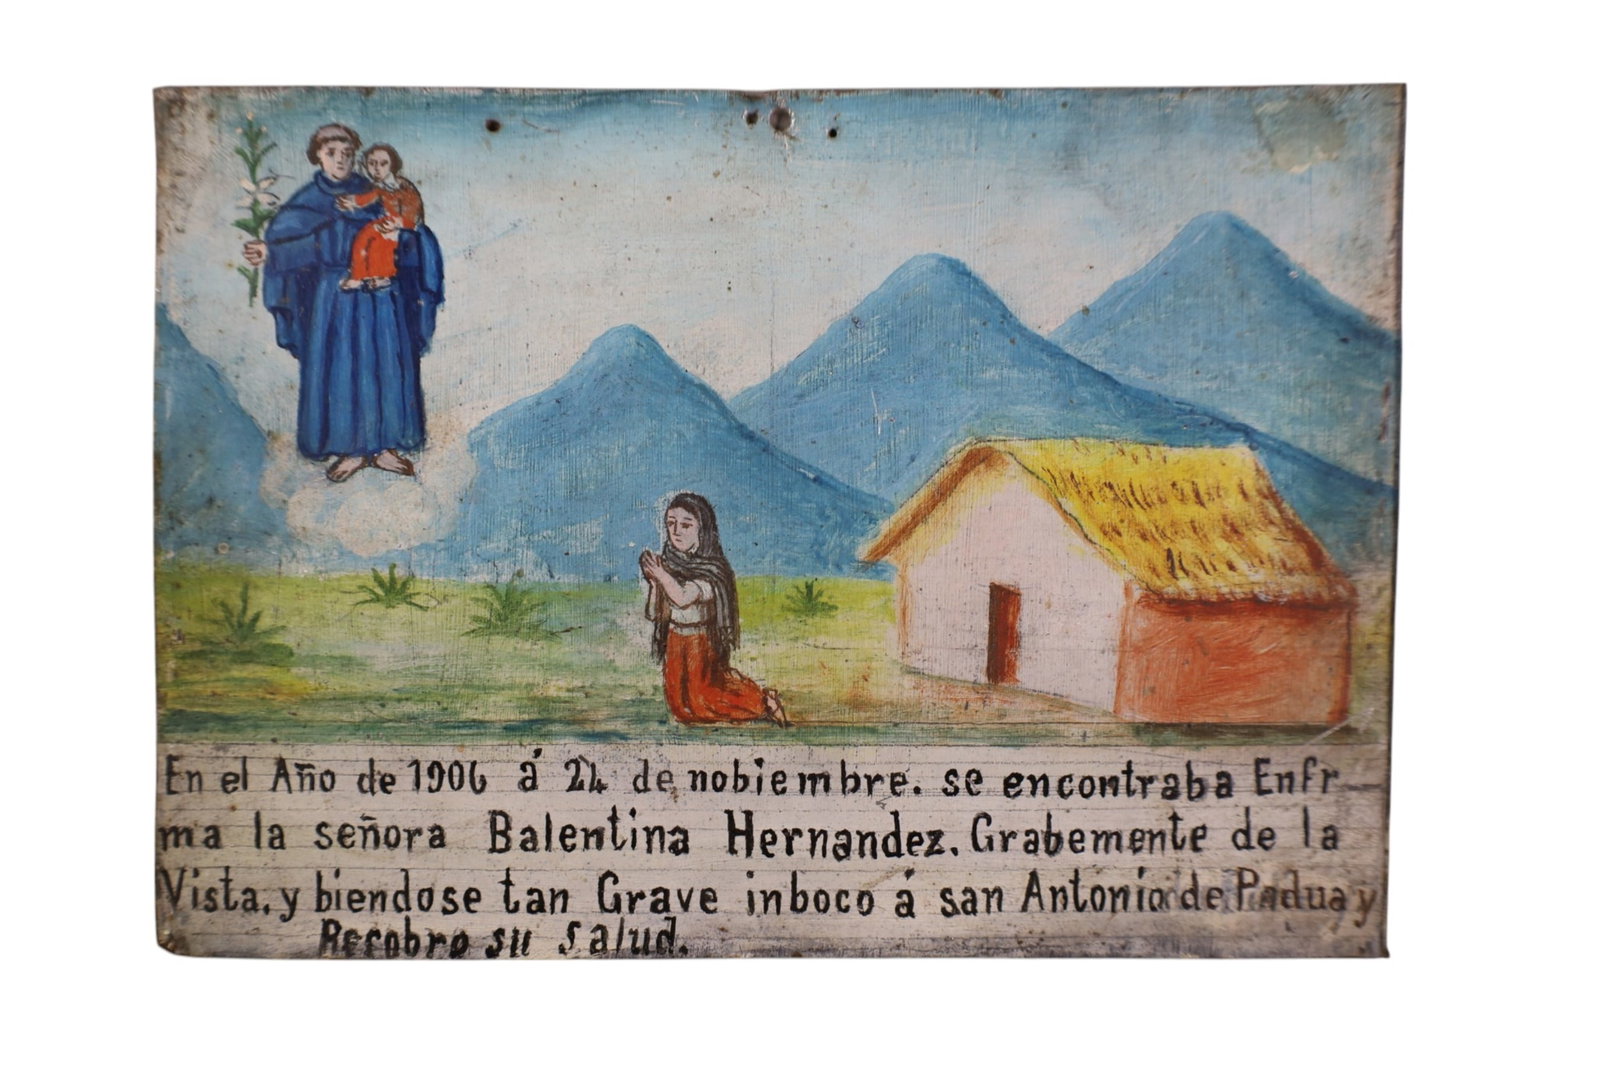 En el Año de 1906 á 24 de nobiembre. se encontraba Enfr
ma la señora Balentina Hernandez. Grabemente de la
Vista. y biendose tan Grave inboco á san Antonio de Padua y
Recobro su salud.